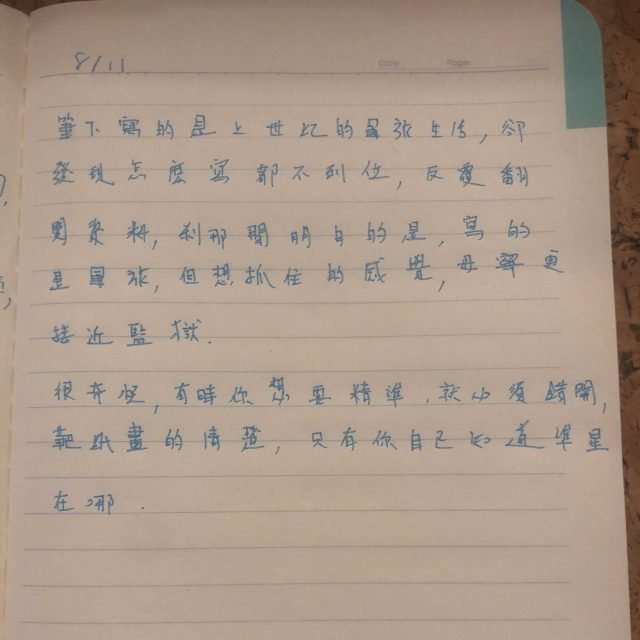 8/11
Date
Page
筆下寫的是上世紀的眷村生活,卻
發現怎麼寫都不到位,反覆翻
閱資料,剎那間明白的是,寫的
是眷村,但想抓住的感覺,毋寧更
接近監獄.
很奇怪,有時你想要精準,就必須錯開,
靶紙畫的清楚,只有你自己知道準星
在哪.